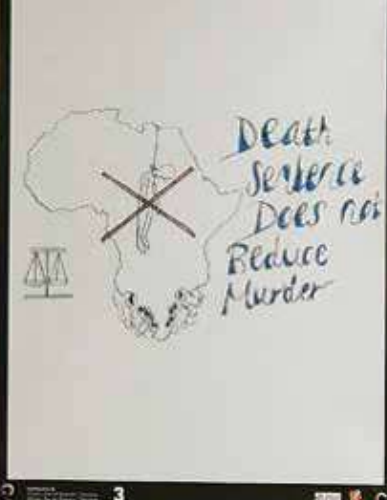 Death
Sentence
Does not
Reduce
Murder
3